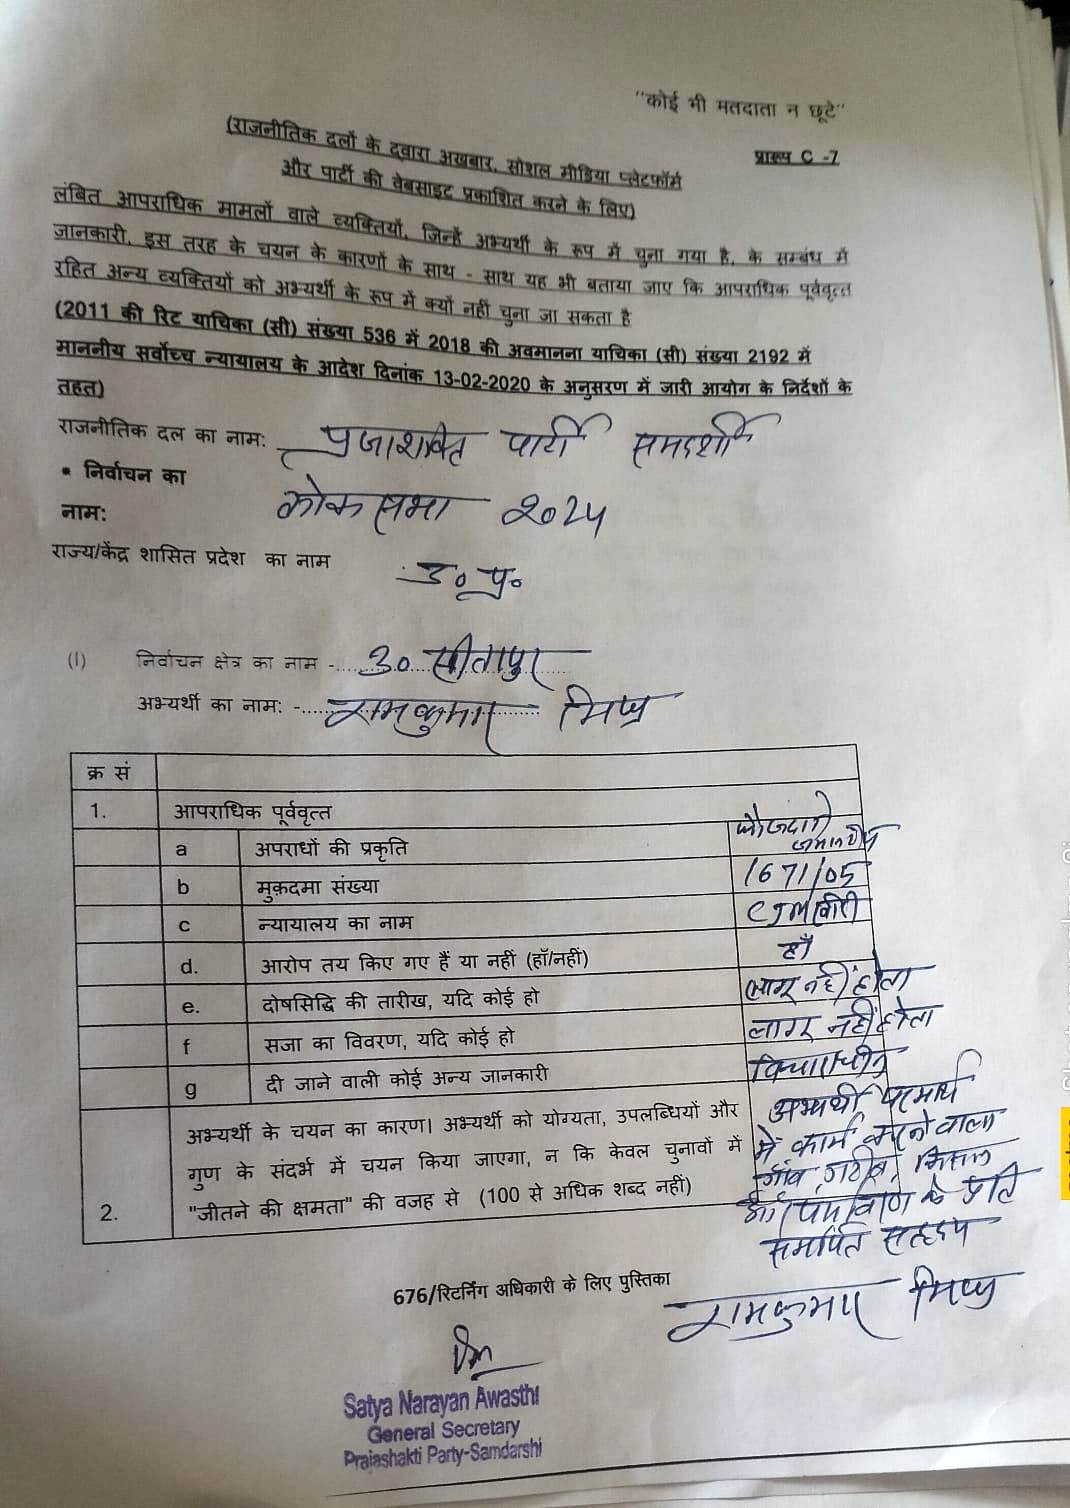 "कोई भी मतदाता न छूटे"
प्रारूप C -7
(राजनीतिक दलों के दवारा अखबार, सोशल मीडिया प्लेटफॉर्म
और पार्टी की वेबसाइट प्रकाशित करने के लिए)
लंबित आपराधिक मामलों वाले व्यक्तियों, जिन्हें अभ्यर्थी के रूप में चुना गया है, के सम्बंध में
जानकारी, इस तरह के चयन के कारणों के साथ - साथ यह भी बताया जाए कि आपराधिक पूर्ववृत्त
रहित अन्य व्यक्तियों को अभ्यर्थी के रूप में क्यों नहीं चुना जा सकता है
(2011 की रिट याचिका (सी) संख्या 536 में 2018 की अवमानना याचिका (सी) संख्या 2192 में
माननीय सर्वोच्च न्यायालय के आदेश दिनांक 13-02-2020 के अनुसरण में जारी आयोग के निर्देशों के
तहत)
राजनीतिक दल का नाम: प्रजाशक्ति पार्टी समदर्शी
• निर्वाचन का
नाम: लोकसभा 2024
राज्य/केंद्र शासित प्रदेश का नाम उ० प्र०
(I) निर्वाचन क्षेत्र का नाम -.... 30 सीतापुर
अभ्यर्थी का नाम: -.... रामकुमार मिश्र
क्र सं
1. आपराधिक पूर्ववृत्त
a अपराधों की प्रकृति फौजदारी
b मुक़दमा संख्या 1671/05
c न्यायालय का नाम CJM
d. आरोप तय किए गए हैं या नहीं (हाँ/नहीं) हाँ
e. दोषसिद्धि की तारीख, यदि कोई हो लागू नहीं होता
f सजा का विवरण, यदि कोई हो लागू नहीं होता
g दी जाने वाली कोई अन्य जानकारी विचाराधीन
2. अभ्यर्थी के चयन का कारण। अभ्यर्थी को योग्यता, उपलब्धियों और
गुण के संदर्भ में चयन किया जाएगा, न कि केवल चुनावों में
"जीतने की क्षमता" की वजह से (100 से अधिक शब्द नहीं)
अभ्यर्थी परमार्थ
में कार्य करने वाला
गाँव, गरीब, किसान
और पर्यावरण के प्रति
समर्पित सहृदय
676/रिटर्निंग अधिकारी के लिए पुस्तिका
रामकुमार मिश्र
Satya Narayan Awasthi
General Secretary
Prajashakti Party-Samdarshi